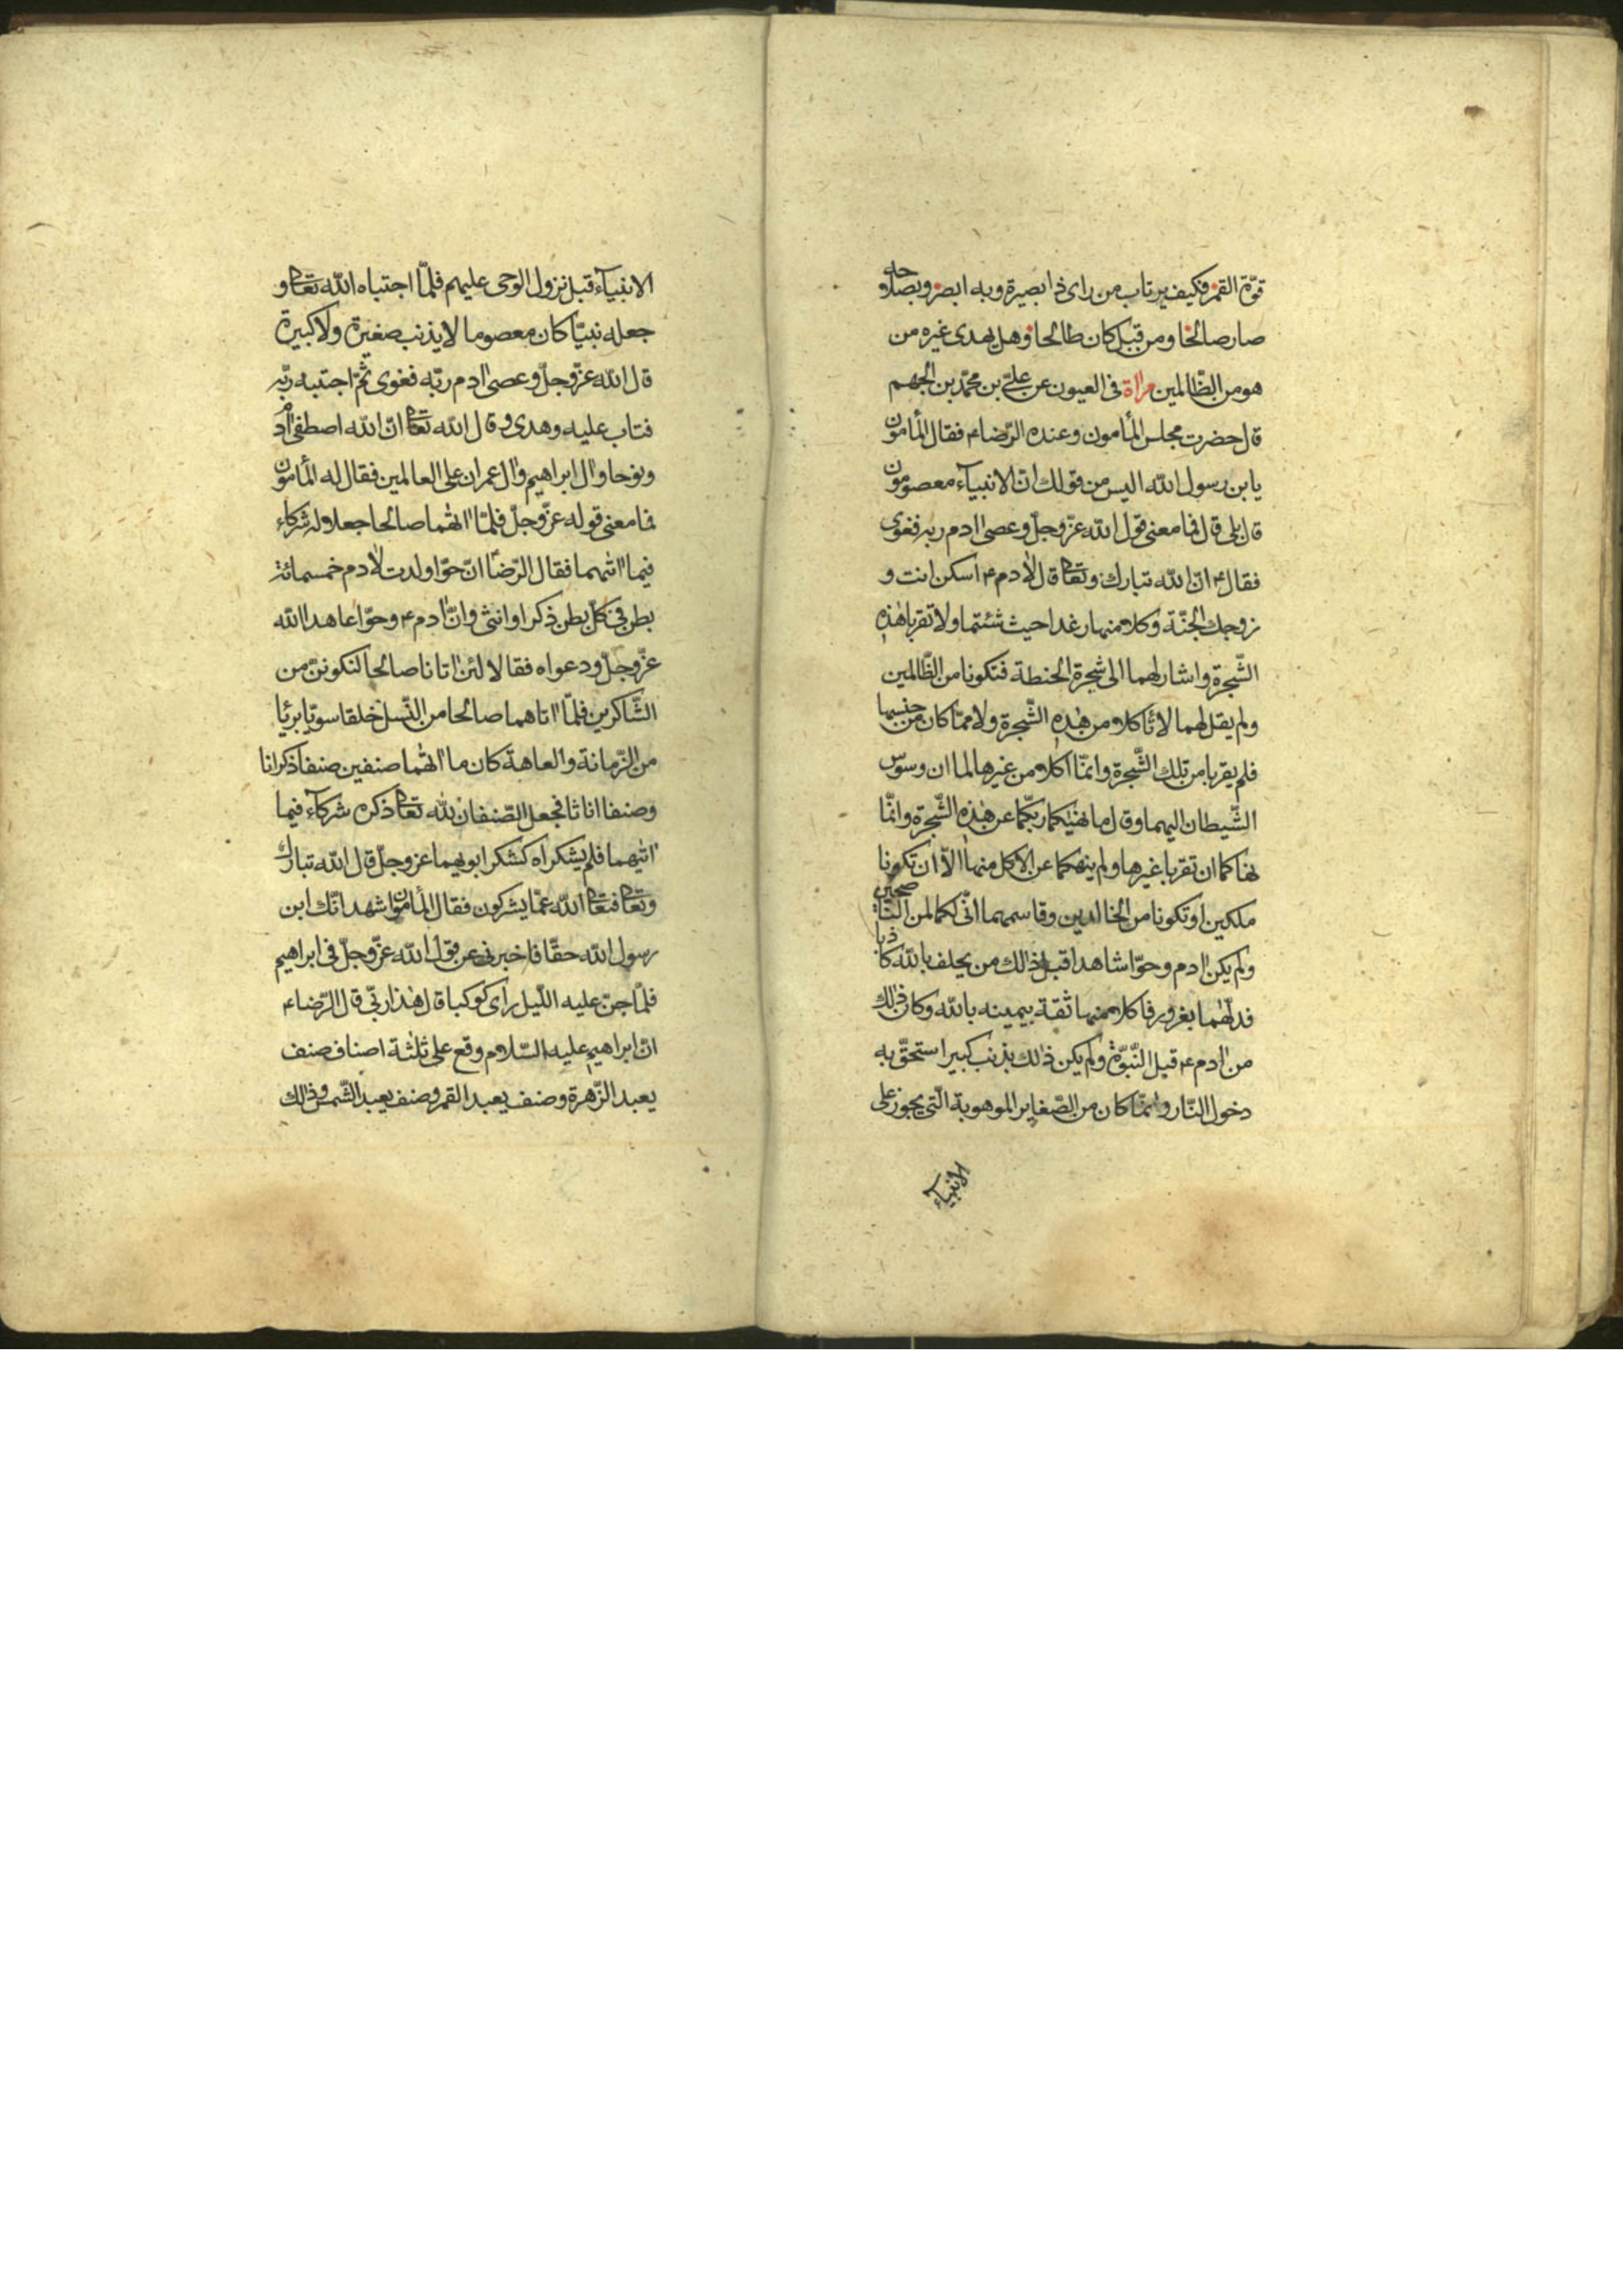 قوّة القمر فكيف يرتاب من راى ذا بصيرة وبه ابصر وبصلاحه
صار صالحا ومن قبل كان طالحا وهل يهدى غيره من
هو من الظّالمين مراة فى العيون عن علىّ بن محمّد بن الجهم
قال حضرت مجلس المأمون وعنده الرّضاء فقال المأمون
يابن رسول الله اليس من قولك انّ الانبيآء معصومون
قال بلى قال فما معنى قول الله عزّ وجلّ وعصى ادم ربه فغوى
فقال ع انّ الله تبارك وتعالى قال لادم ع اسكن انت و
زوجك الجنّة وكلا منها رغدا حيث شئتما ولا تقربا هذه
الشّجرة واشار لهما الى شجرة الحنطة فتكونا من الظّالمين
ولم يقل لهما لا تأكلا من هذه الشّجرة ولا ممّا كان من جنسها
فلم يقربا من تلك الشّجرة وانمّا اكلا من غيرها لما ان وسوس
الشّيطان اليهما وقال ما نهيكما ربّكما عن هذه الشّجرة وانّما
نهاكما ان تقربا غيرها ولم ينهكما عن الاكل منها الّا ان تكونا
ملكين او تكونا من الخالدين وقاسمهما انّى لكما لمن النّاصحين
ولم يكن ادم وحوّا شاهدا قبل ذلك من يحلف بالله كاذبا
فدلّهما بغرور فاكلا منها ثقة بيمينه بالله وكان ذلك
من ادم ع قبل النّبوّة ولم يكن ذلك بذنب كبير استحقّ به
دخول النّار وانمّا كان من الصّغاير الموهوبة الّتى يجوز على
الانبيآء
الانبيآء قبل نزول الوحى عليهم فلمّا اجتباه الله تعالى و
جعله نبيّا كان معصوما لا يذنب صغيرة ولا كبيرة
قال الله عزّ وجلّ وعصى ادم ربّه فغوى ثمّ اجتبيه ربّه
فتاب عليه وهدى وقال الله تعالى انّ الله اصطفى ادم
ونوحا وال ابراهيم وال عمران على العالمين فقال له المأمون
فما معنى قوله عزّ وجلّ فلمّا اتهما صالحا جعلا له شركاء
فيما اتيهما فقال الرّضا انّ حوّا ولدت لادم خمسمائة
بطن فى كلّ بطن ذكرا وانثى وانّ ادم ع وحوّا عاهدا الله
عزّ وجلّ ودعواه فقالا لئن اتانا صالحا لنكوننّ من
الشّاكرين فلمّا اتاهما صالحا من النّسل خلقا سويّا بريّا
من الزّمانة والعاهة كان ما اتهما صنفين صنفا ذكرانا
وصنفا اناثا فجعل الصّنفان لله تعالى ذكره شركآء فيما
اتيهما فلم يشكراه كشكر ابويهما عزّ وجلّ قال الله تبارك
وتعالى فتعالى الله عمّا يشركون فقال المأمون اشهد انّك ابن
رسول الله حقّا فاخبرنى عن قول الله عزّ وجلّ فى ابراهيم
فلمّا جنّ عليه اللّيل راى كوكبا قال هذا ربّى قال الرّضاء
انّ ابراهيم عليه السّلام وقع على ثلثة اصناف صنف
يعبد الزّهرة وصنف يعبد القمر وصنف يعبد الشّمس وذلك